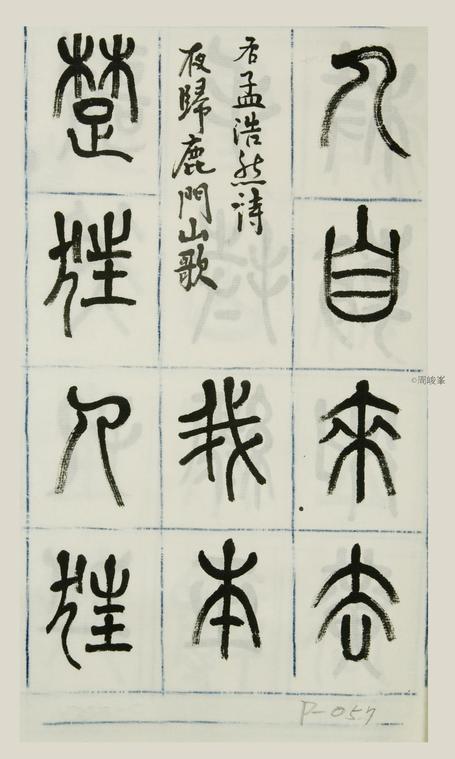 人自來去
右孟浩然詩
夜歸鹿門山歌
我本
楚狂人狂
©周峻峯
P-057